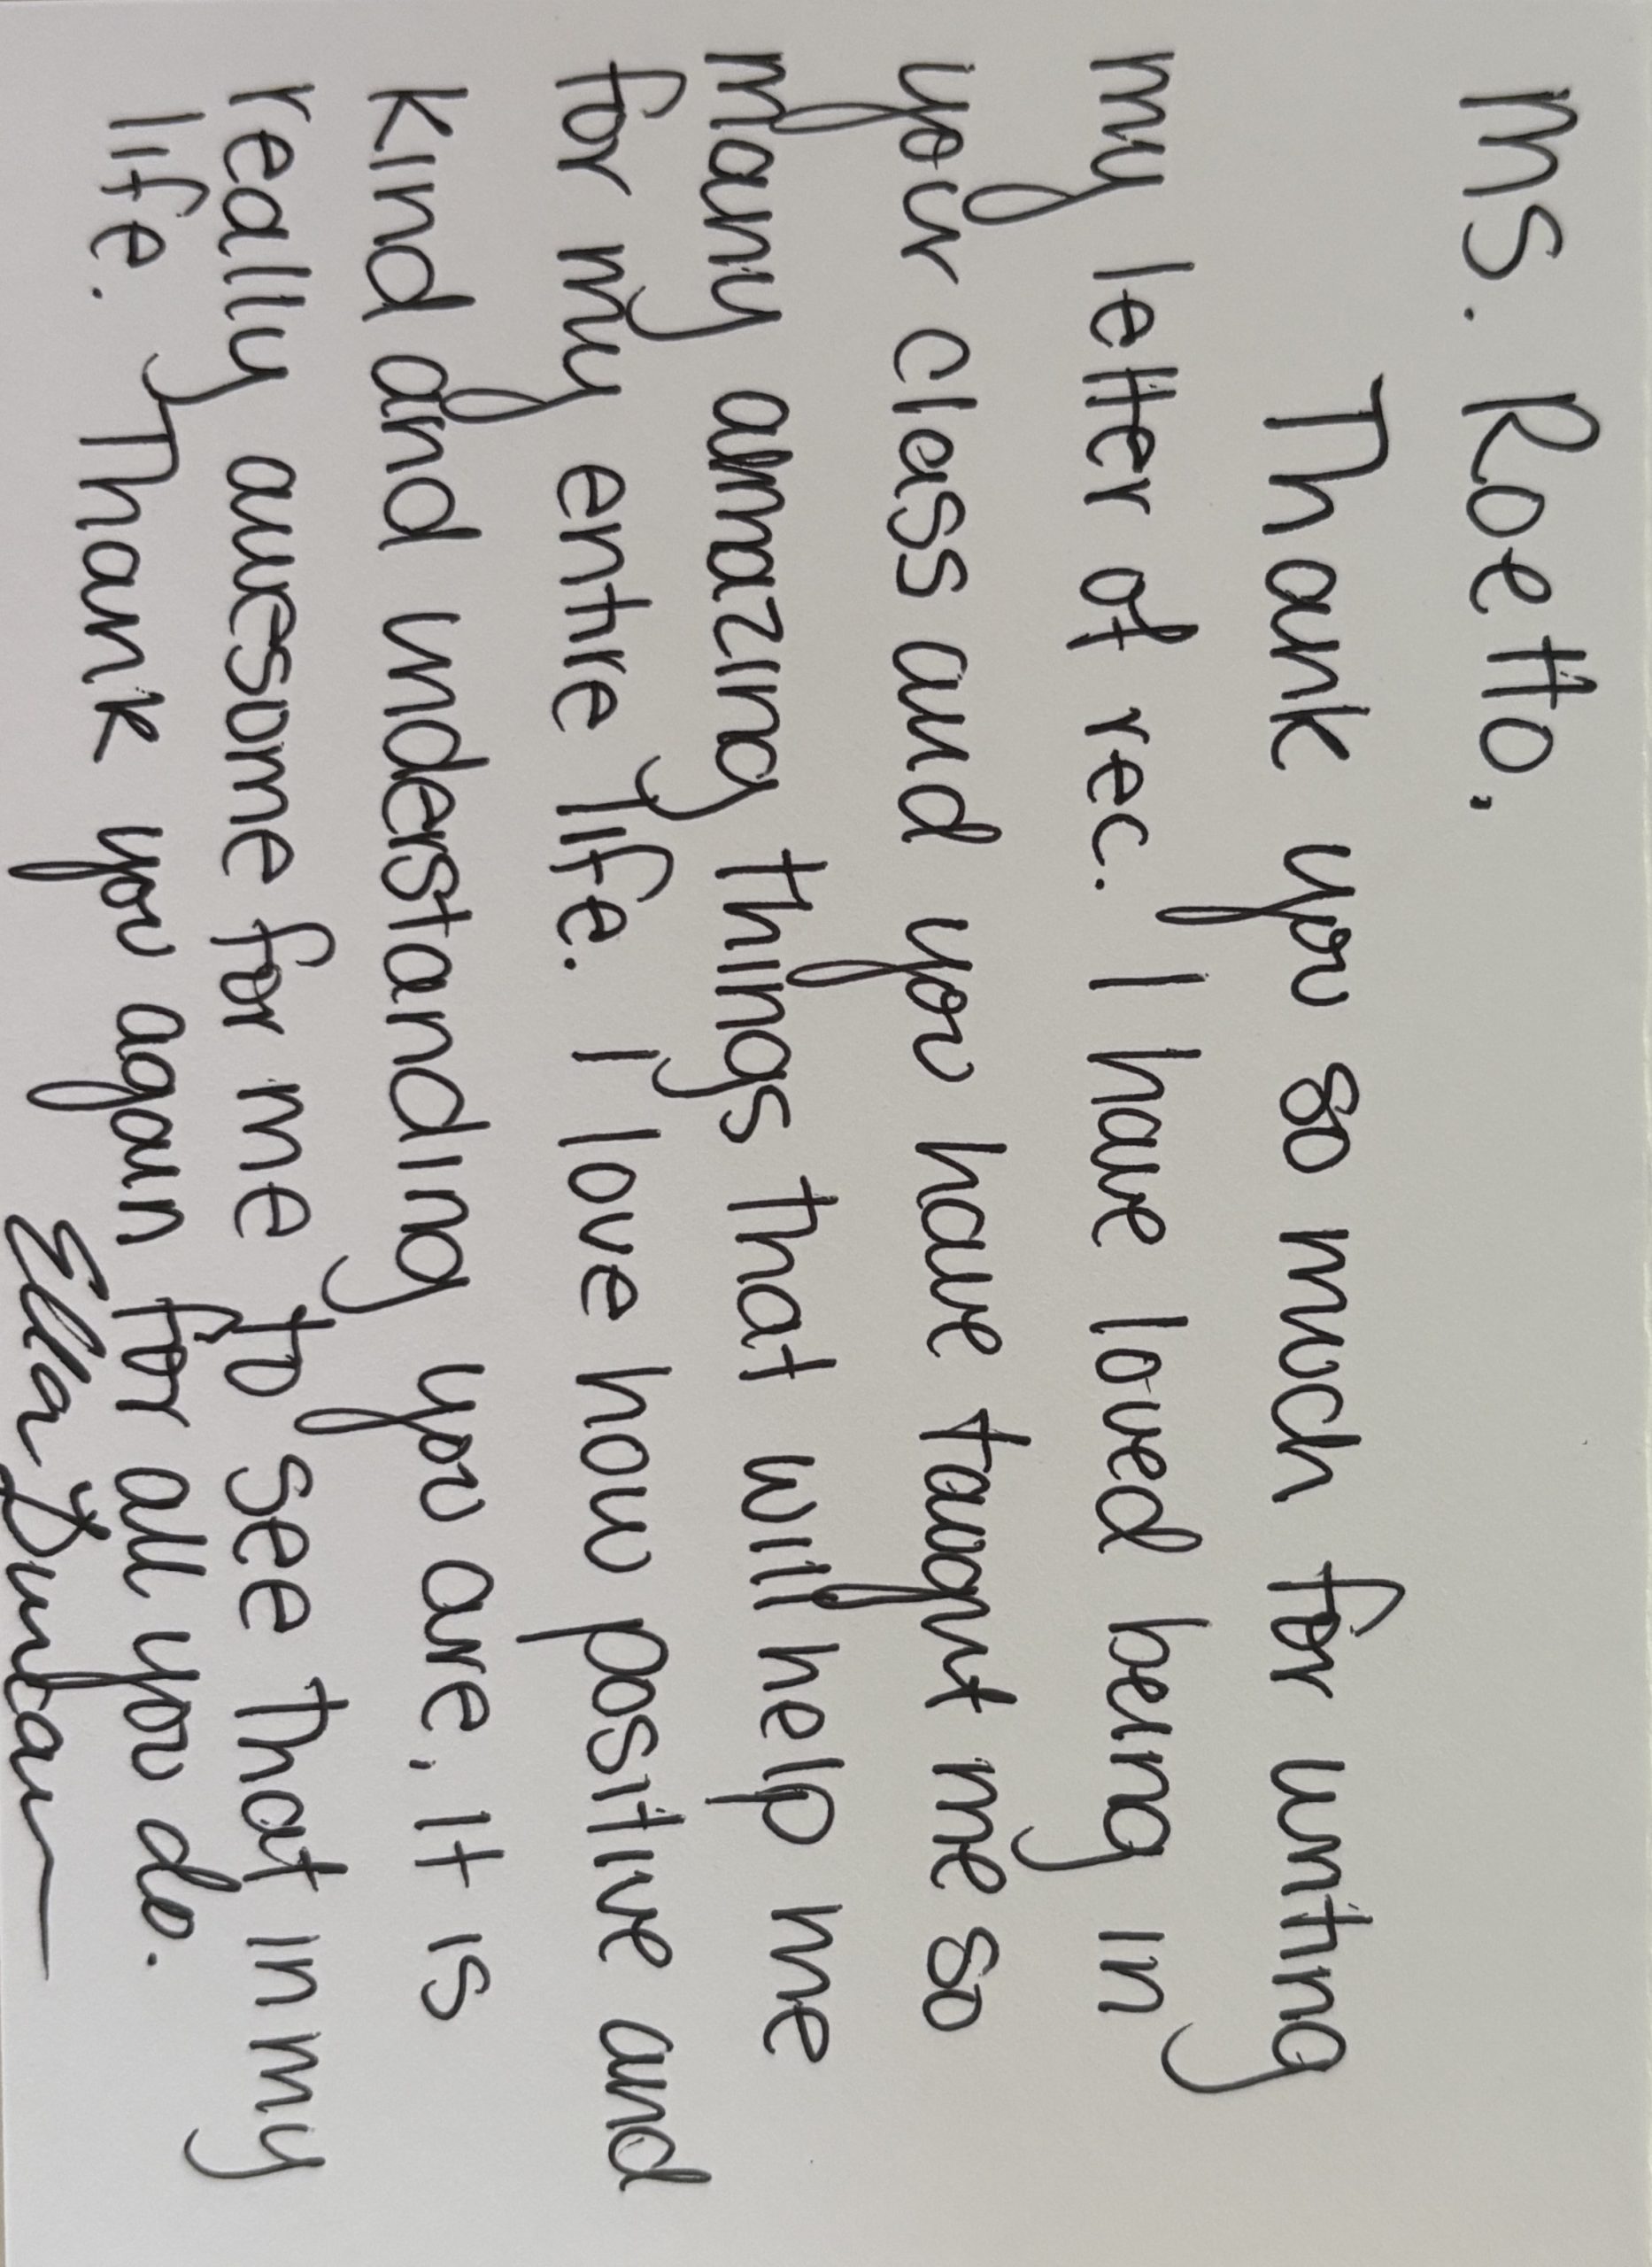 Ms. Roetto,
Thank you so much for writing
my letter of rec. I have loved being in
your class and you have taught me so
many amazing things that will help me
for my entire life. I love how positive and
kind and understanding you are. It is
really awesome for me to see that in my
life. Thank you again for all you do.
Ella Duncan